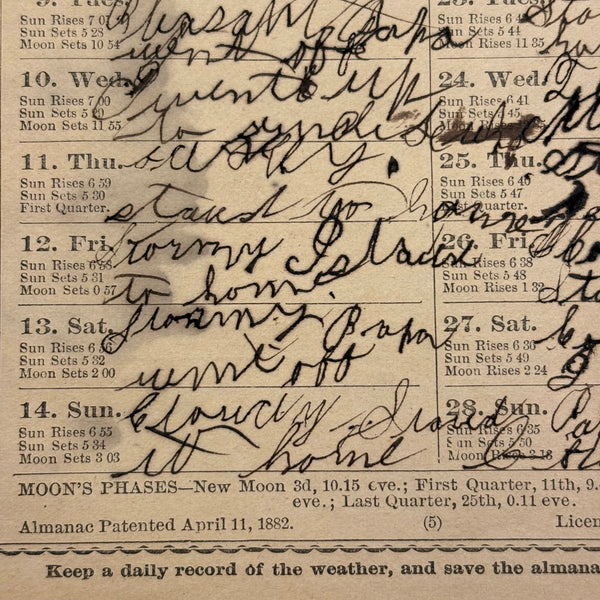 9. Tues.
Sun Rises 7 01
Sun Sets 5 28
Moon Sets 10 54
Pleasant Papa
went off
10. Wed.
Sun Rises 7 00
Sun Sets 5 29
Moon Sets 11 55
I went up
to uncle
11. Thu.
Sun Rises 6 59
Sun Sets 5 30
First Quarter.
staid to home
12. Fri.
Sun Rises 6 58
Sun Sets 5 31
Moon Sets 0 57
Stormy I staid
to home
13. Sat.
Sun Rises 6 56
Sun Sets 5 32
Moon Sets 2 00
Stormy. Papa
went off
14. Sun.
Sun Rises 6 55
Sun Sets 5 34
Moon Sets 3 03
Cloudy. I staid
at home
Sun Rises 6 43
Sun Sets 5 44
Moon Rises 11 35
24. Wed.
Sun Rises 6 41
Sun Sets 5 45
25. Thu.
Sun Rises 6 40
Sun Sets 5 47
26. Fri.
Sun Rises 6 38
Sun Sets 5 48
Moon Rises 1 32
27. Sat.
Sun Rises 6 36
Sun Sets 5 49
Moon Rises 2 24
28. Sun.
Sun Rises 6 35
Sun Sets 5 50
Moon Rises 3 13
MOON'S PHASES—New Moon 3d, 10.15 eve.; First Quarter, 11th, 9.
eve.; Last Quarter, 25th, 0.11 eve.
Almanac Patented April 11, 1882. (5) Licen
Keep a daily record of the weather, and save the almana